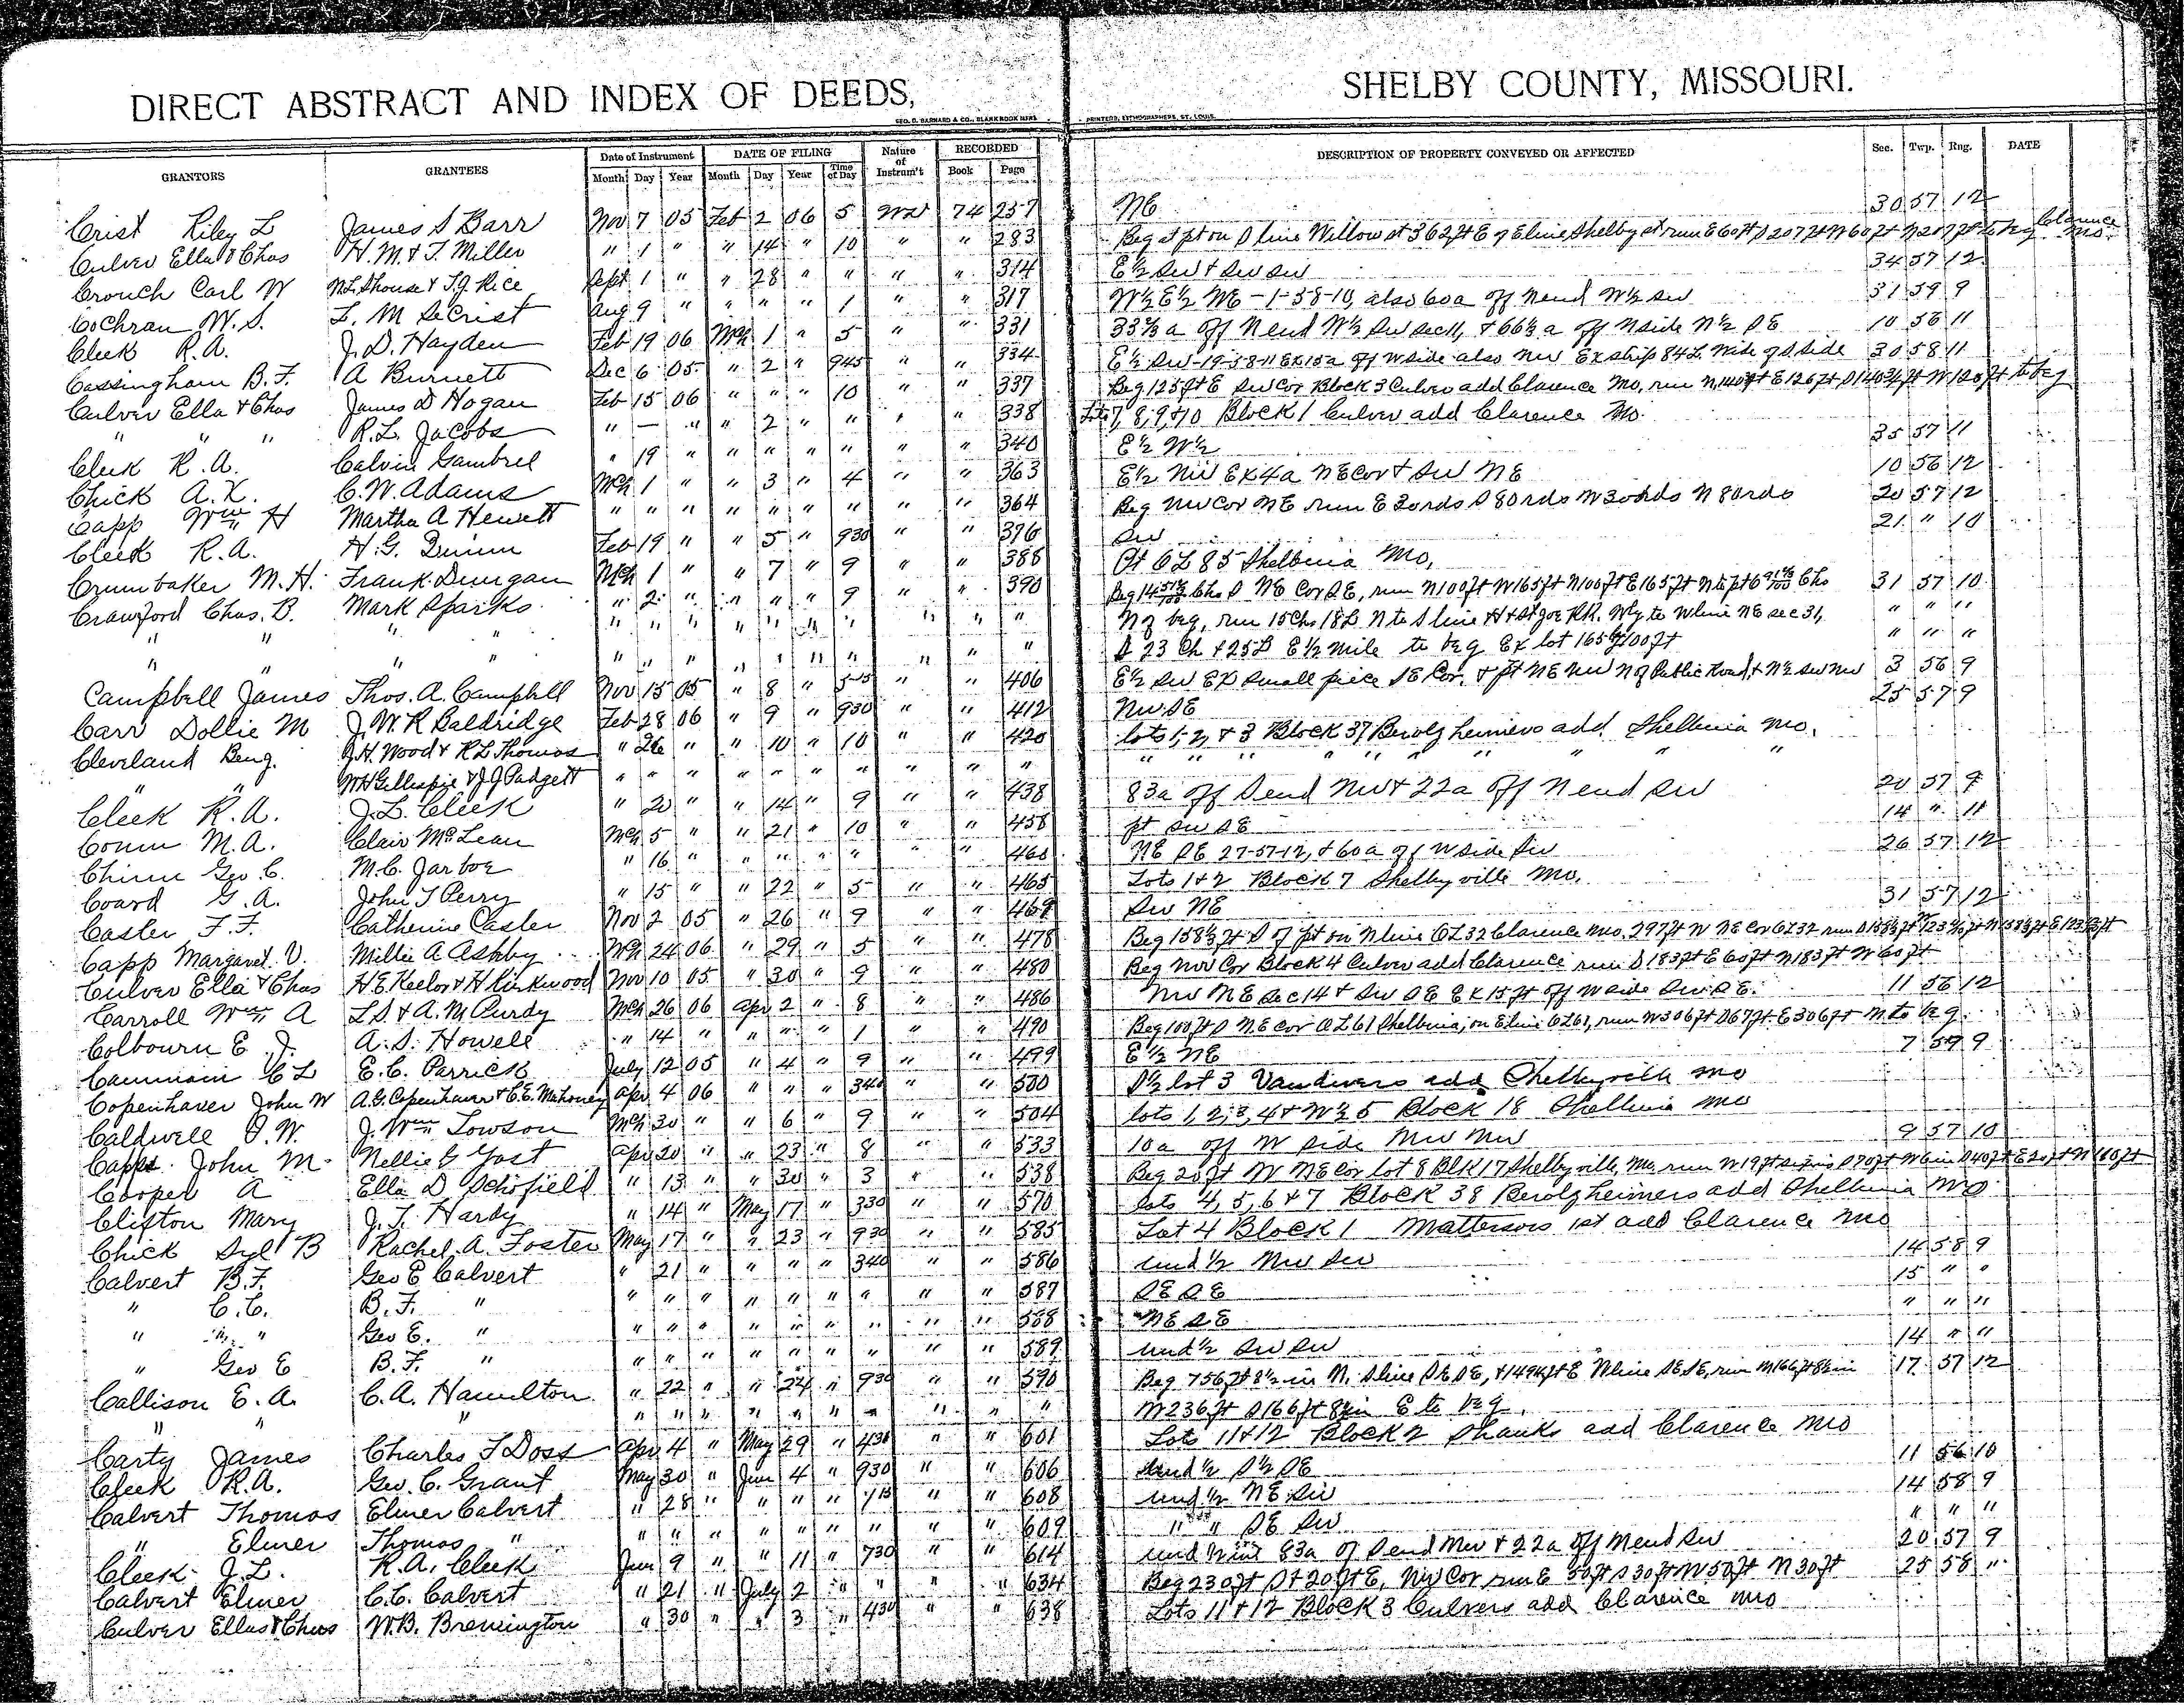 DIRECT ABSTRACT AND INDEX OF DEEDS, SHELBY COUNTY, MISSOURI.
GEO. D. BARNARD & CO., BLANK BOOK MFRS. PRINTERS, LITHOGRAPHERS, ST. LOUIS.
GRANTORS GRANTEES Date of Instrument DATE OF FILING Nature of Instrum't RECORDED DESCRIPTION OF PROPERTY CONVEYED OR AFFECTED Sec. Twp. Rng. DATE
Month Day Year Month Day Year Time of Day Book Page
Crist Riley L James S Barr Nov 7 05 Feb 2 06 5 WD 74 257 NE 30 57 12
Culver Ella & Chas H. M. & T. Miller " 1 " " 14 " 10 " " 283 Beg at pt on S line Willow st 362 ft E of E line Shelby st run E 60 ft S 207 ft W 60 ft N 207 ft to beg Clarence Mo.
Crouch Carl W M L Shouse & T. J. Rice Sept 1 " " 28 " " " " 314 E½ SW & SW SW 34 57 12
Cochran W. S. L. M Secrist Aug 9 " " " " 1 " " 317 W½ E½ NE - 1-58-10, also 60a off N end W½ SW 31 59 9
Cleek R. A. J. D. Hayden Feb 19 06 Mch 1 " 5 " " 331 33⅓ a off N end W½ SW sec 11, & 66⅔ a off N side N½ SE 10 56 11
Cassingham B. F. A Burnett Dec 6 05 " 2 " 945 " " 334 E½ SW-19-58-11 Ex 15a off W side also NW Ex strip 84 L. Wide of S side 30 58 11
Culver Ella & Chas James D Hogan Feb 15 06 " " " 10 " " 337 Beg 125 ft E SW Cor Block 3 Culver add Clarence Mo, run N 140 ft E 126 ft S 140¾ ft W 120 ft to beg
" " " R. L. Jacobs " — " " 2 " " " " 338 Lots 7, 8, 9, & 10 Block 1 Culver add Clarence Mo.
Cleek R. A. Calvin Gambrel " 19 " " " " " " " 340 E½ W½ 35 57 11
Chick A. K. C. W. Adams Mch 1 " " 3 " 4 " " 363 E½ NW Ex 4a NE Cor & SW NE 10 56 12
Capp Wm H Martha A Hewett " " " " " " " " " 364 Beg NW Cor NE run E 30 rds S 80 rds W 30 rds N 80 rds 20 57 12
Cleek R. A. H. G. Quinn Feb 19 " " 5 " 930 " " 376 SW 21 " 10
Crumbaker M. H. Frank Dungan Mch 1 " " 7 " 9 " " 388 Pt OL 85 Shelbina Mo,
Crawford Chas. B. Mark Sparks " 2 " " " " 9 " " 390 Beg 14 Chs S NE Cor SE, run N 100 ft W 165 ft N 100 ft E 165 ft N to pt 6 Chs 31 57 10
" " " " " " " " " " " " " " N of beg, run 15 Chs 18 L N to S line H & St Joe RR. Wly to W line NE sec 31, " " "
" " " " " " " " " " " " " " S 23 Ch & 25 L E ½ mile to beg Ex lot 165 by 100 ft " " "
Campbell James Thos. A. Campbell Nov 15 05 " 8 " 515 " " 406 E½ SW Ex small piece SE Cor. & pt NE NW N of Public Road, & N½ SW NW 3 56 9
Carr Dollie M J. W. R Baldridge Feb 28 06 " 9 " 930 " " 412 NW SE 25 57 9
Cleveland Benj. J. H. Wood & R L Thomas " 26 " " 10 " 10 " " 420 lots 1, 2, & 3 Block 37 Berolzheimers add Shelbina Mo.
" " W H Gillaspie & J J Padgett " " " " " " " " " " " " " " " " "
Cleek R. A. J. L. Cleek " 20 " " 14 " 9 " " 438 83a off S end NW & 22a off N end SW 20 57 9
Conn M. A. Clair McLean Mch 5 " " 21 " 10 " " 458 pt SW SE 14 " 11
Chinn Geo. C. M. C. Jarboe " 16 " " " " " " " 460 NE SE 27-57-12, & 60a off W side SW 26 57 12
Coard G. A. John T Perry " 15 " " 22 " 5 " " 465 Lots 1 & 2 Block 7 Shelbyville Mo.
Casler F. F. Catherine Casler Nov 2 05 " 26 " 9 " " 469 SW NE 31 57 12
Capp Margaret V. Millie A Ashby Mch 24 06 " 29 " 5 " " 478 Beg 158⅓ ft S of pt on N line OL 32 Clarence Mo. 297 ft W NE Cor OL 32 run
Culver Ella & Chas H E Keelor & H Kirkwood Nov 10 05 " 30 " 9 " " 480 Beg NW Cor Block 4 Culver add Clarence run S 183 ft E 60 ft N 183 ft W 60 ft
Carroll Wm A L S. & A. M Purdy Mch 26 06 Apr 2 " 8 " " 486 NW NE Sec 14 & SW SE Ex 15 ft off W side SW SE. 11 56 12
Colbourn E. J. A. S. Howell " 14 " " " " 1 " " 490 Beg 100 ft S NE Cor OL 61 Shelbina, on E line OL 61, run W 306 ft S 67 ft E 306 ft N to beg.
C L E. C. Parrick July 12 05 " 4 " 9 " " 499 E½ NE 7 59 9
Copenhaver John W A. G. Copenhaver & C. E. Mahoney Apr 4 06 " " " 340 " " 500 S½ lot 3 Vandivers add Shelbyville Mo
Caldwell O. W. J. Wm Towson Mch 30 " " 6 " 9 " " 504 lots 1, 2, 3, 4 & W½ 5 Block 18 Shelbina Mo
Capps John M. Nellie G Yost Apr 20 " " 23 " 8 " " 533 10a off W side NW NW 9 57 10
Cooper A Ella D Schofield " 13 " " 30 " 3 " " 538 Beg 20 ft W NE Cor lot 8 Blk 17 Shelbyville, Mo, run W 19 ft S 70 ft W 6 in S 40 ft E 20 ft N 160 ft
Clifton Mary J. T. Hardy " 14 " May 17 " 330 " " 570 lots 4, 5, 6 & 7 Block 38 Berolzheimers add Shelbina Mo
Chick Syl B Rachel A. Foster May 17 " " 23 " 930 " " 585 Lot 4 Block 1 Mattersons 1st add Clarence Mo
Calvert B. F. Geo E Calvert " 21 " " " " 340 " " 586 und ½ NW SW 14 58 9
" C. C. B. F. " " " " " " " " " " 587 SE SE 15 " "
" " " Geo E. " " " " " " " " " " 588 NE SE " " "
" Geo E B. F. " " " " " " " " " " 589 und ½ SW SW 14 " "
Callison E. A. C. A. Hamilton " 22 " " 24 " 930 " " 590 Beg 756 ft 8½ in N. S line SE SE, & 149 ft E W line SE SE, run N 166 ft 8½ in 17 57 12
" " " " " " " " " " " " " W 236 ft S 166 ft 8½ in E to beg.
Carty James Charles T Doss Apr 4 " May 29 " 430 " " 601 Lots 11 & 12 Block 2 Shanks add Clarence Mo
Cleek R. A. Geo. C. Grant May 30 " June 4 " 930 " " 606 und ½ S½ SE 11 56 10
Calvert Thomas Elmer Calvert " 28 " " " " 115 " " 608 und ½ NE SW 14 58 9
" Elmer Thomas " " " " " " " " " " 609 " " SE SW " " "
Cleek J. L. R. A. Cleek June 9 " " 11 " 730 " " 614 und ½ int 83a of S end NW & 22a off N end SW 20 57 9
Calvert Elmer C. C. Calvert " 21 " July 2 " " " " 634 Beg 230 ft S & 20 ft E, NW Cor run E 50 ft S 30 ft W 50 ft N 30 ft 25 58 "
Culver Ella & Chas W. B. Brewington " 30 " " 3 " 430 " " 638 Lots 11 & 12 Block 3 Culvers add Clarence Mo